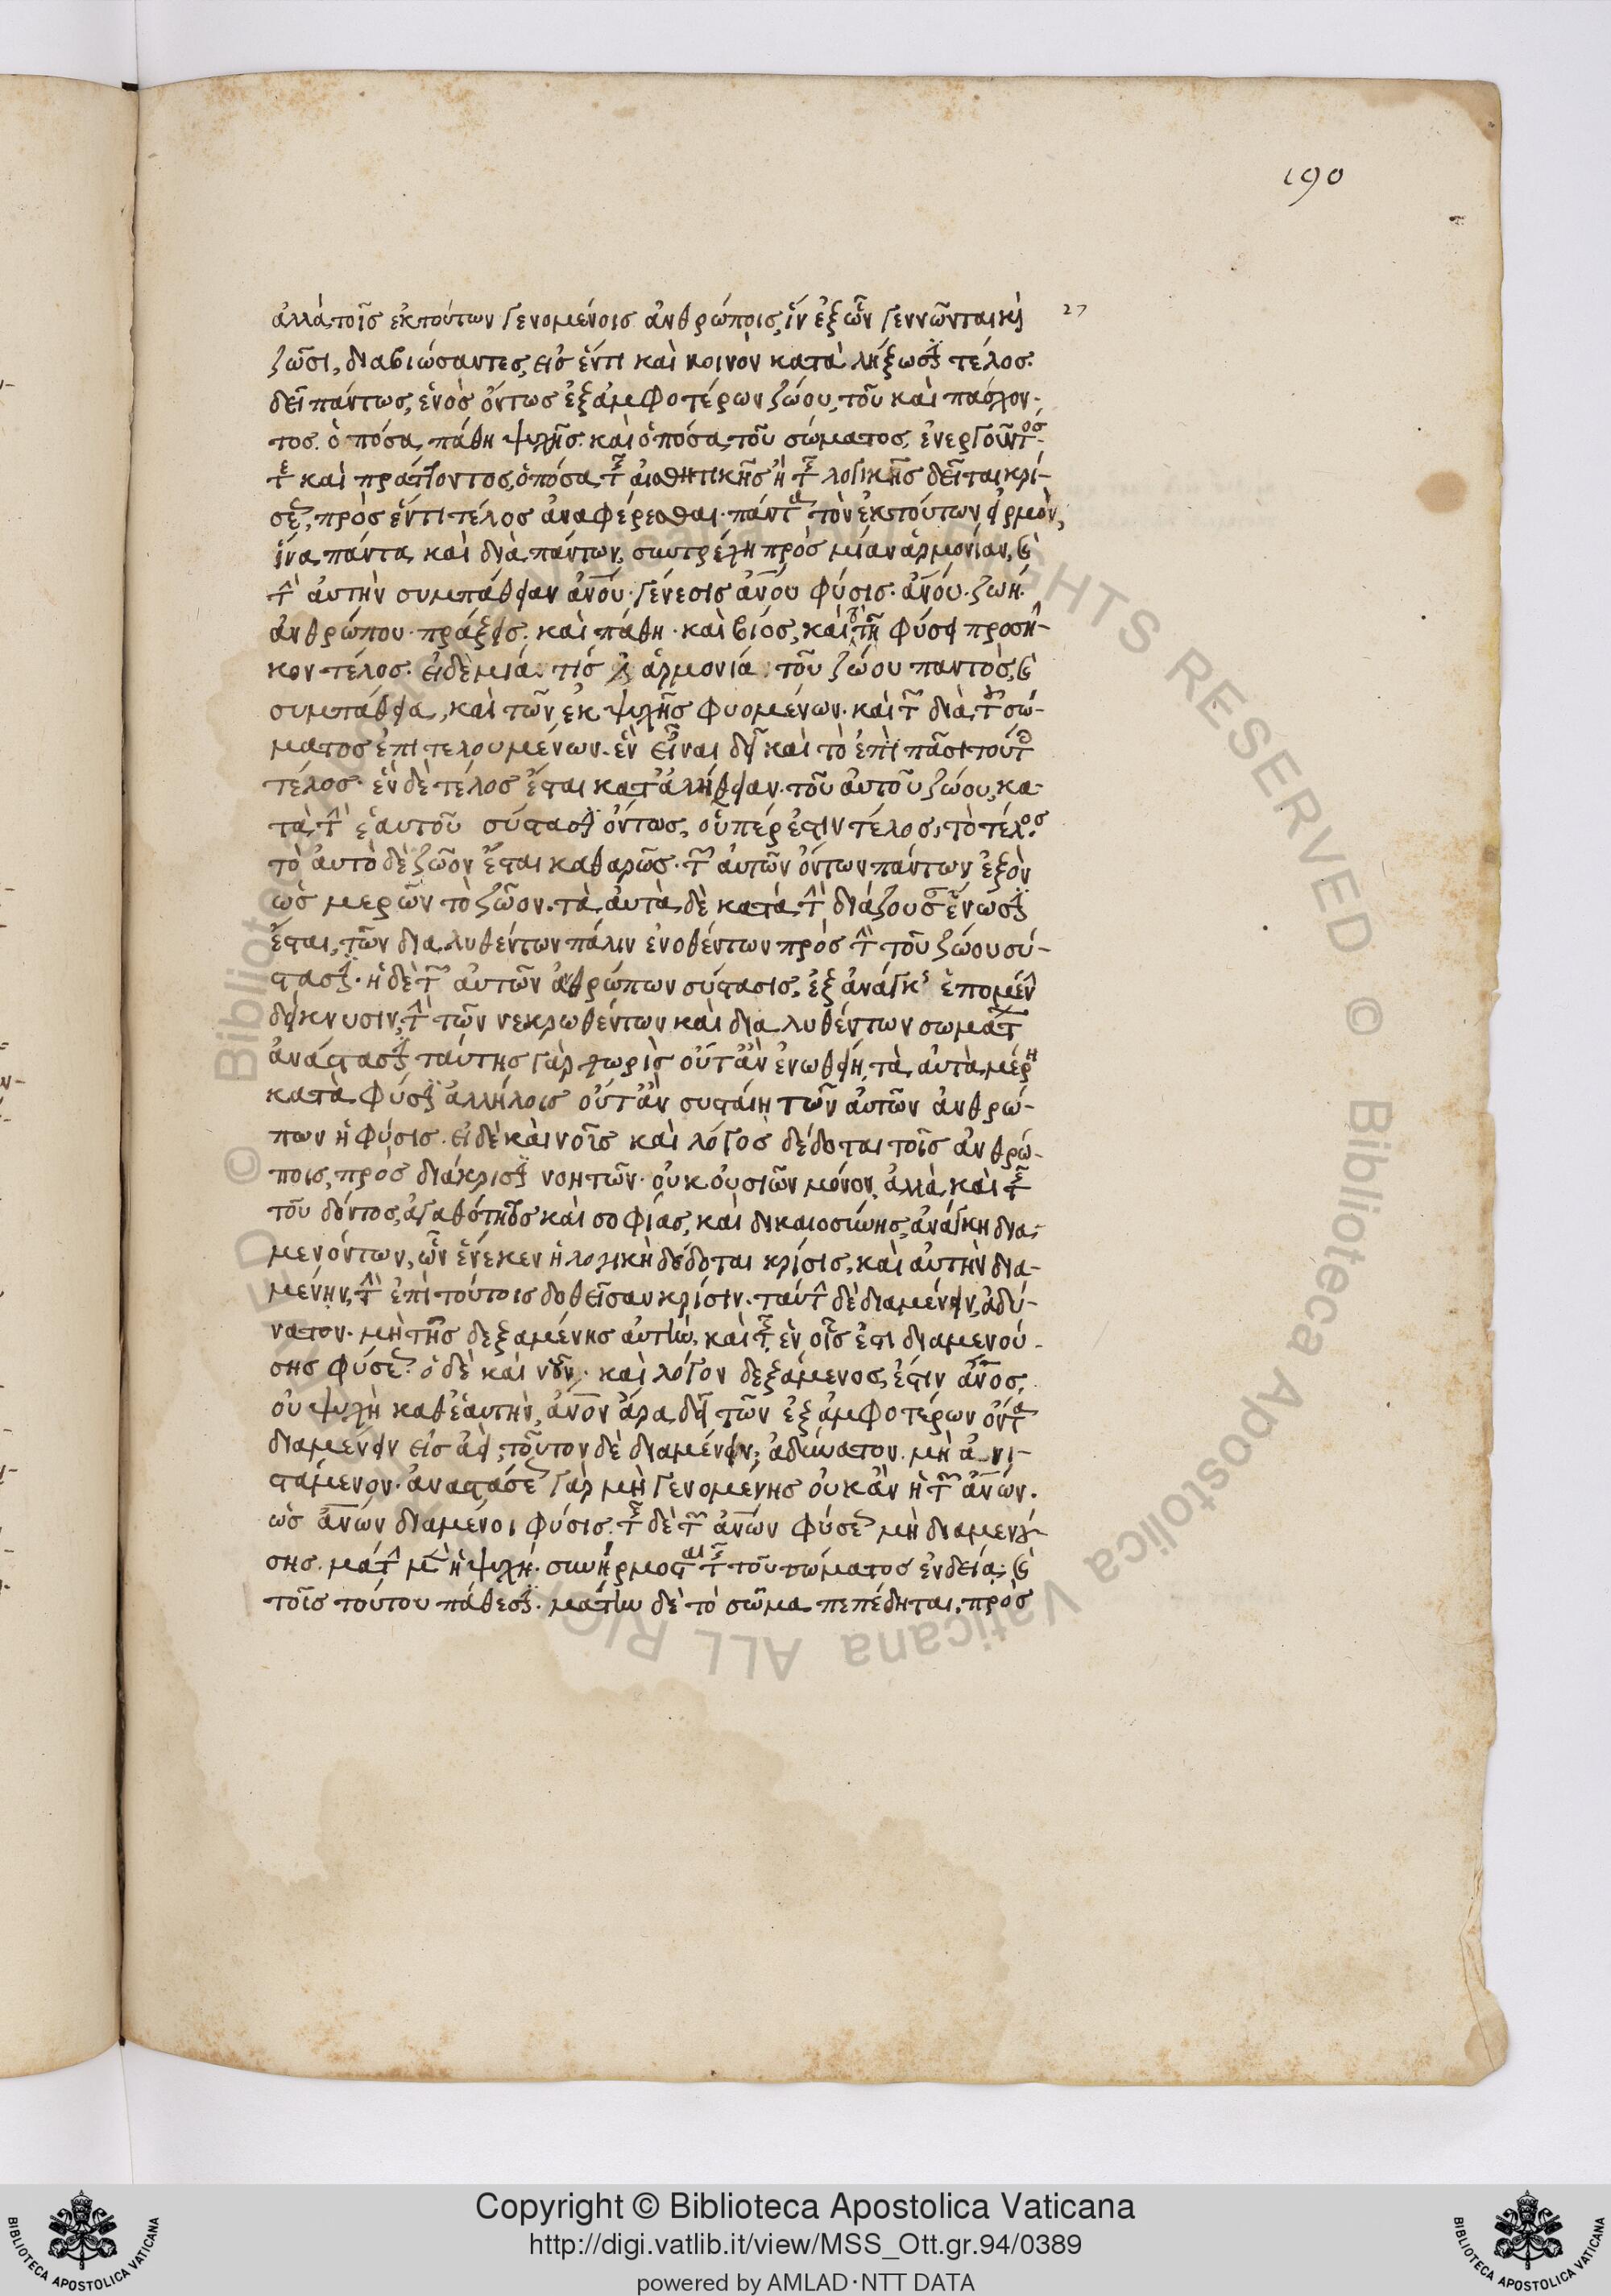 190
ἀλλὰ τοῖς ἐκ τούτων γενομένοις ἀνθρώποις, ἵν ἐξ ὧν γεννῶνται κὶ 27
ζῶσι, διαβιώσαντες, εἰς ἕν τι καὶ κοινὸν καταλήξωσιν τέλος.
δεῖ πάντως, ἑνὸς ὄντως ἐξ ἀμφοτέρων ζώου, τοῦ καὶ πάσχον-
τος. ὁπόσα πάθη ψυχῆς. καὶ ὁπόσα τοῦ σώματος, ἐνεργοῦντος
τὲ καὶ πράττοντος, ὁπόσα τῆς αἰσθητικῆς ἢ τῆς λογικῆς δεῖται κρί-
σεως, πρὸς ἕν τι τέλος ἀναφέρεσθαι. πάντα τὸν ἐκ τούτων εἱρμὸν,
ἵνα πάντα καὶ διὰ πάντων, συντρέχη πρὸς μίαν ἁρμονίαν, καὶ
τὴν αὐτὴν συμπάθειαν ἀνου. γένεσις ἀνου φύσις. ἀνου. ζωή.
ἀνθρώπου. πράξεις. καὶ πάθη. καὶ βίος, καὶ τὸ τῆ φύσει προσῆ-
κον τέλος. εἰ δὲ μία τίς ἁρμονία τοῦ ζώου παντὸς, καὶ
συμπάθεια, καὶ τῶν ἐκ ψυχῆς φυομένων. καὶ τῶν διὰ τοῦ σώ-
ματος ἐπιτελουμένων. ἓν εἶναι δεῖ καὶ τὸ ἐπὶ πᾶσι τούτοις
τέλος. ἓν δὲ τέλος ἔσται κατ ἀλήθειαν. τοῦ αὐτοῦ ζώου, κα-
τὰ τὴν ἑαυτοῦ σύστασιν ὄντως, οὗπέρ ἐστιν τέλος, τὸ τέλος
τὸ αὐτὸ δὲ ζῶον ἔσται καθαρῶς. τῶν αὐτῶν ὄντων πάντων ἐξ ὧν
ὡς μερῶν τὸ ζῶον. τὰ αὐτὰ δὲ κατὰ τὴν διάζουσαν ἕνωσιν
ἔσται, τῶν διαλυθέντων πάλιν ἑνοθέντων πρὸς τὴν τοῦ ζώου σύ-
στασιν. ἡ δὲ τῶν αὐτῶν ἀνθρώπων σύστασις, ἐξ ἀνάγκης ἑπομένην
δείκνυσιν, τὴν τῶν νεκρωθέντων καὶ διαλυθέντων σωμάτων
ἀνάστασιν ταύτης γὰρ χωρὶς οὔτ ἂν ἑνωθείη, τὰ αὐτὰ μέρη
κατὰ φύσιν ἀλλήλοις οὔτ ἂν συσταίη τῶν αὐτῶν ἀνθρώ-
πων ἡ φύσις. εἰ δὲ καὶ νοῦς καὶ λόγος δέδοται τοῖς ἀνθρώ-
ποις, πρὸς διάκρισιν νοητῶν. οὐκ οὐσιῶν μόνον, ἀλλὰ καὶ τῆς
τοῦ δόντος, ἀγαθότητος καὶ σοφίας, καὶ δικαιοσύνης, ἀνάγκη δια-
μενόντων, ὧν ἕνεκεν ἡ λογικὴ δέδοται κρίσις, καὶ αὐτὴν δια-
μένην, τὴν ἐπὶ τούτοις δοθεῖσαν κρίσιν. ταύτην δὲ διαμένειν, ἀδύ-
νατον. μὴ τῆς δεξαμένης αὐτὴν, καὶ τῆς ἐν οἷς ἐστι διαμενού-
σης φύσεως. ὁ δὲ καὶ νοῦν. καὶ λόγον δεξάμενος, ἐστιν ἄνος,
οὐ ψυχὴ καθ ἑαυτὴν, ἀνον ἄρα δεῖ τῶν ἐξ ἀμφοτέρων ὄντα
διαμένειν εἰς ἀεὶ, τοῦτον δὲ διαμένειν, ἀδύνατον. μὴ ἀνι-
στάμενον. ἀναστάσεως γὰρ μὴ γενομένης οὐκ ἂν ἡ τῶν ἀνων.
ὡς ἀνων διαμένοι φύσις. τῆς δὲ τῶν ἀνων φύσεως μὴ διαμενού-
σης. μάτην μὲν ἡ ψυχή. συνήρμοσται τῆς τοῦ σώματος ἐνδεία. καὶ
τοῖς τούτου πάθεσιν. μάτην δὲ τὸ σῶμα πεπέδηται, πρὸς
© Biblioteca Apostolica Vaticana ALL RIGHTS RESERVED
Copyright © Biblioteca Apostolica Vaticana
http://digi.vatlib.it/view/MSS_Ott.gr.94/0389
powered by AMLAD·NTT DATA
BIBLIOTECA APOSTOLICA VATICANA
BIBLIOTECA APOSTOLICA VATICANA